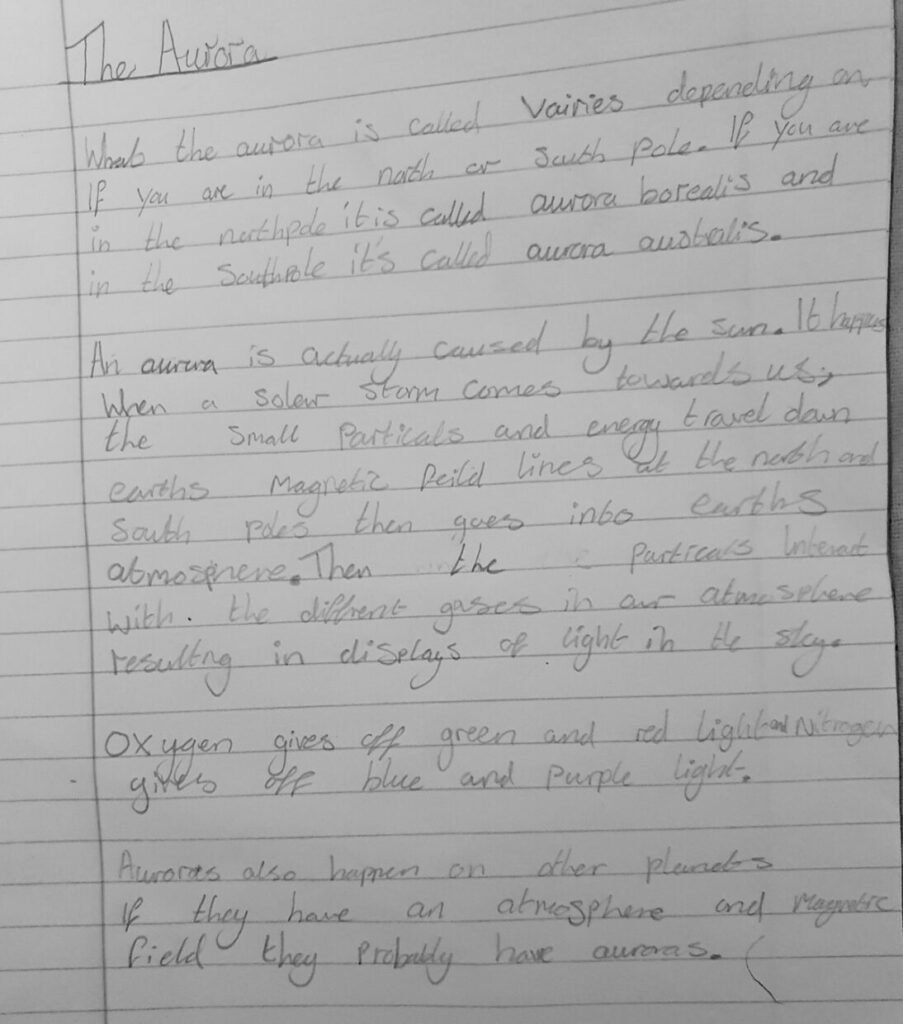 The Aurora
What the aurora is called vairies depending on
If you are in the north or south pole. If you are
in the northpole it is called aurora borealis and
in the Southpole it's called aurora australis.
An aurora is actually caused by the sun. It happens
When a soler storm comes towards us,
the small particals and energy travel down
earths magnetic feild lines at the north and
south poles then goes into earths
atmosphere. Then the particals interact
with. the diffrent gases in our atmosphere
resulting in displays of light in the sky.
Oxygen gives off green and red light and Nitrogen
gives off blue and purple light.
Auroras also happen on other planets
If they have an atmosphere and magnetic
field they probably have auroras.